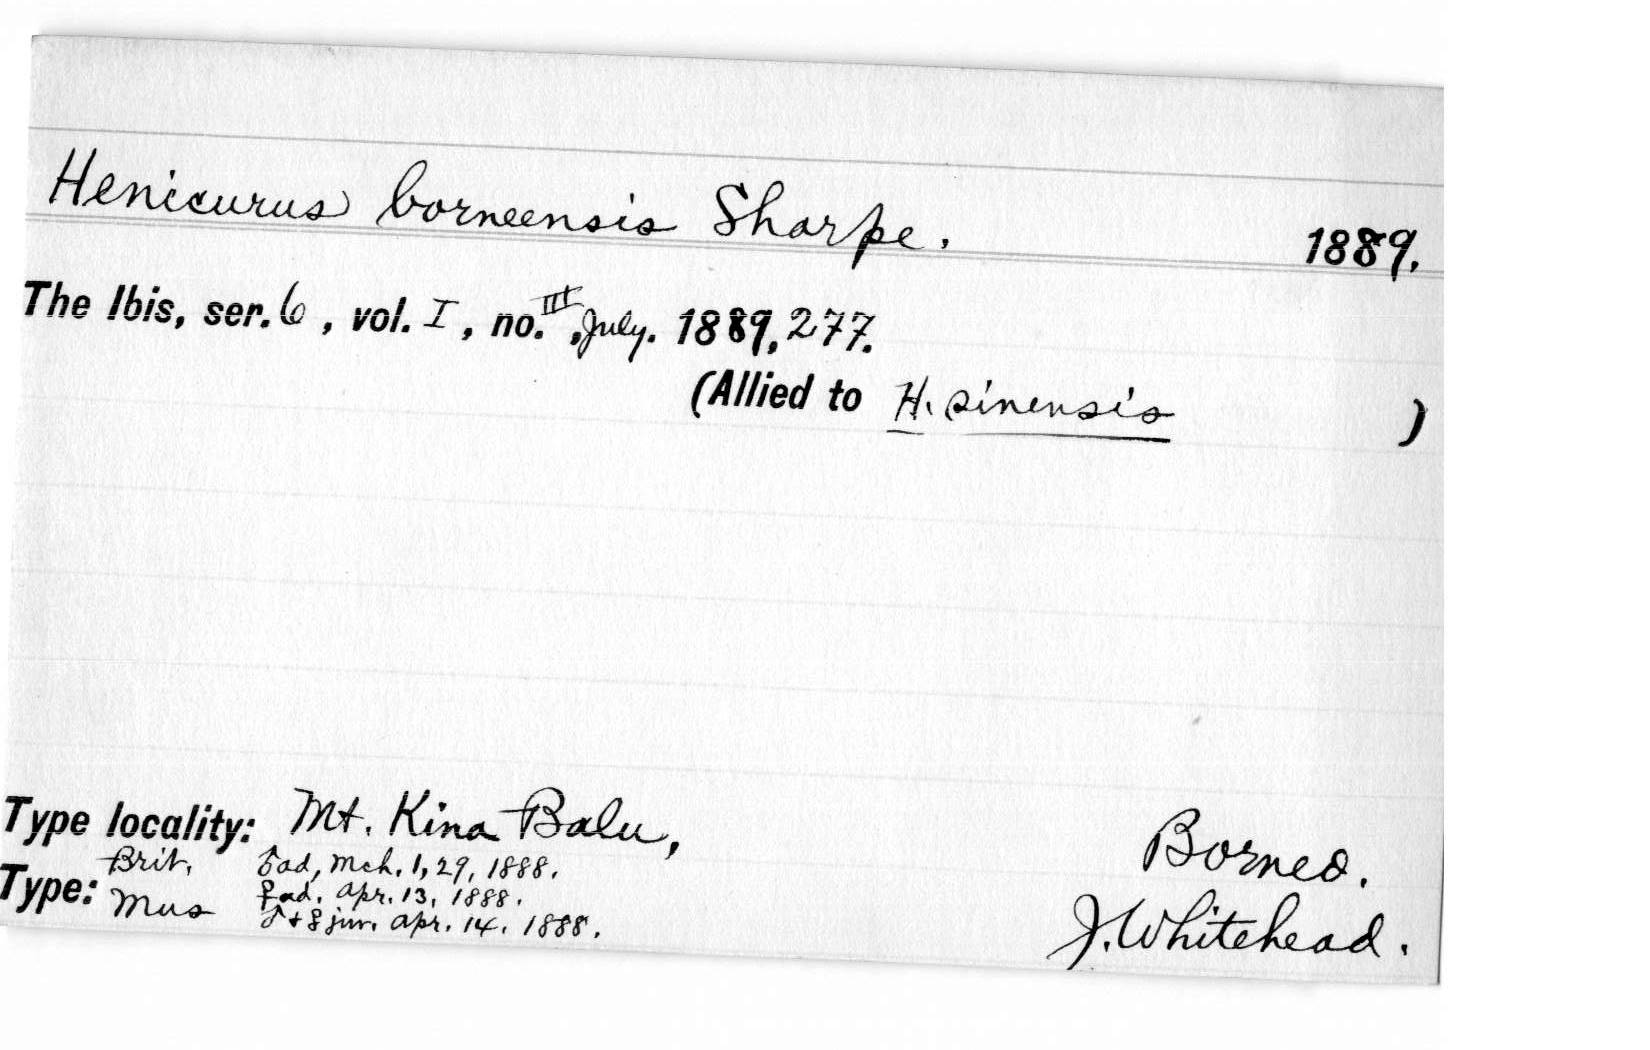 Henicurus borneensis Sharpe. 1889.
The Ibis, ser. 6, vol. I, no. III, July. 1889, 277.
(Allied to H. sinensis )
Type locality: Mt. Kina Balu, Borneo.
Type: Brit. Mus ♂ad, Mch. 1, 29, 1888.
♀ad. Apr. 13, 1888.
♂+♀ juv. Apr. 14. 1888. J. Whitehead.